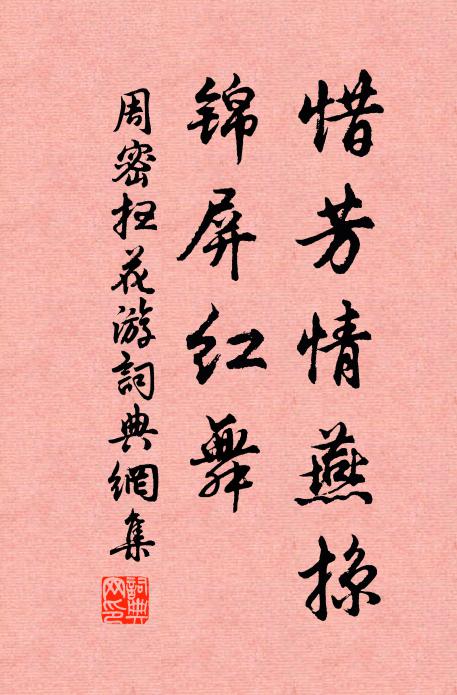 惜芳情燕掠
锦屏红舞
周密扫花游詞典網集
詞典
网印